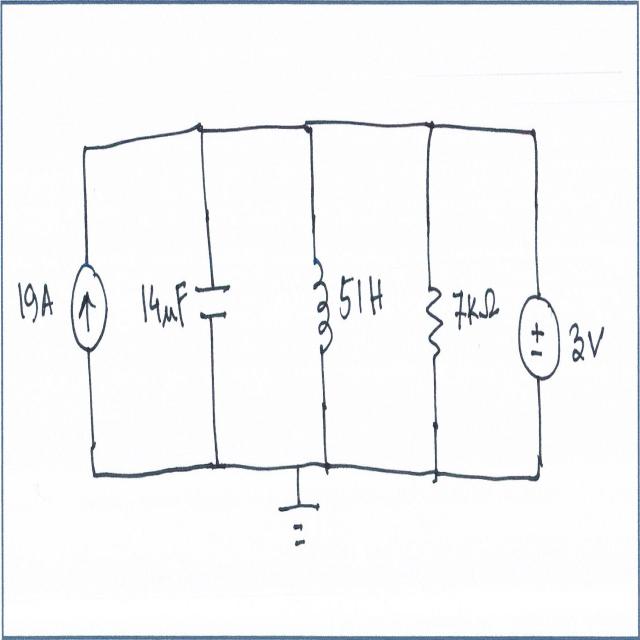 19A
14μF
51H
7KΩ
3V